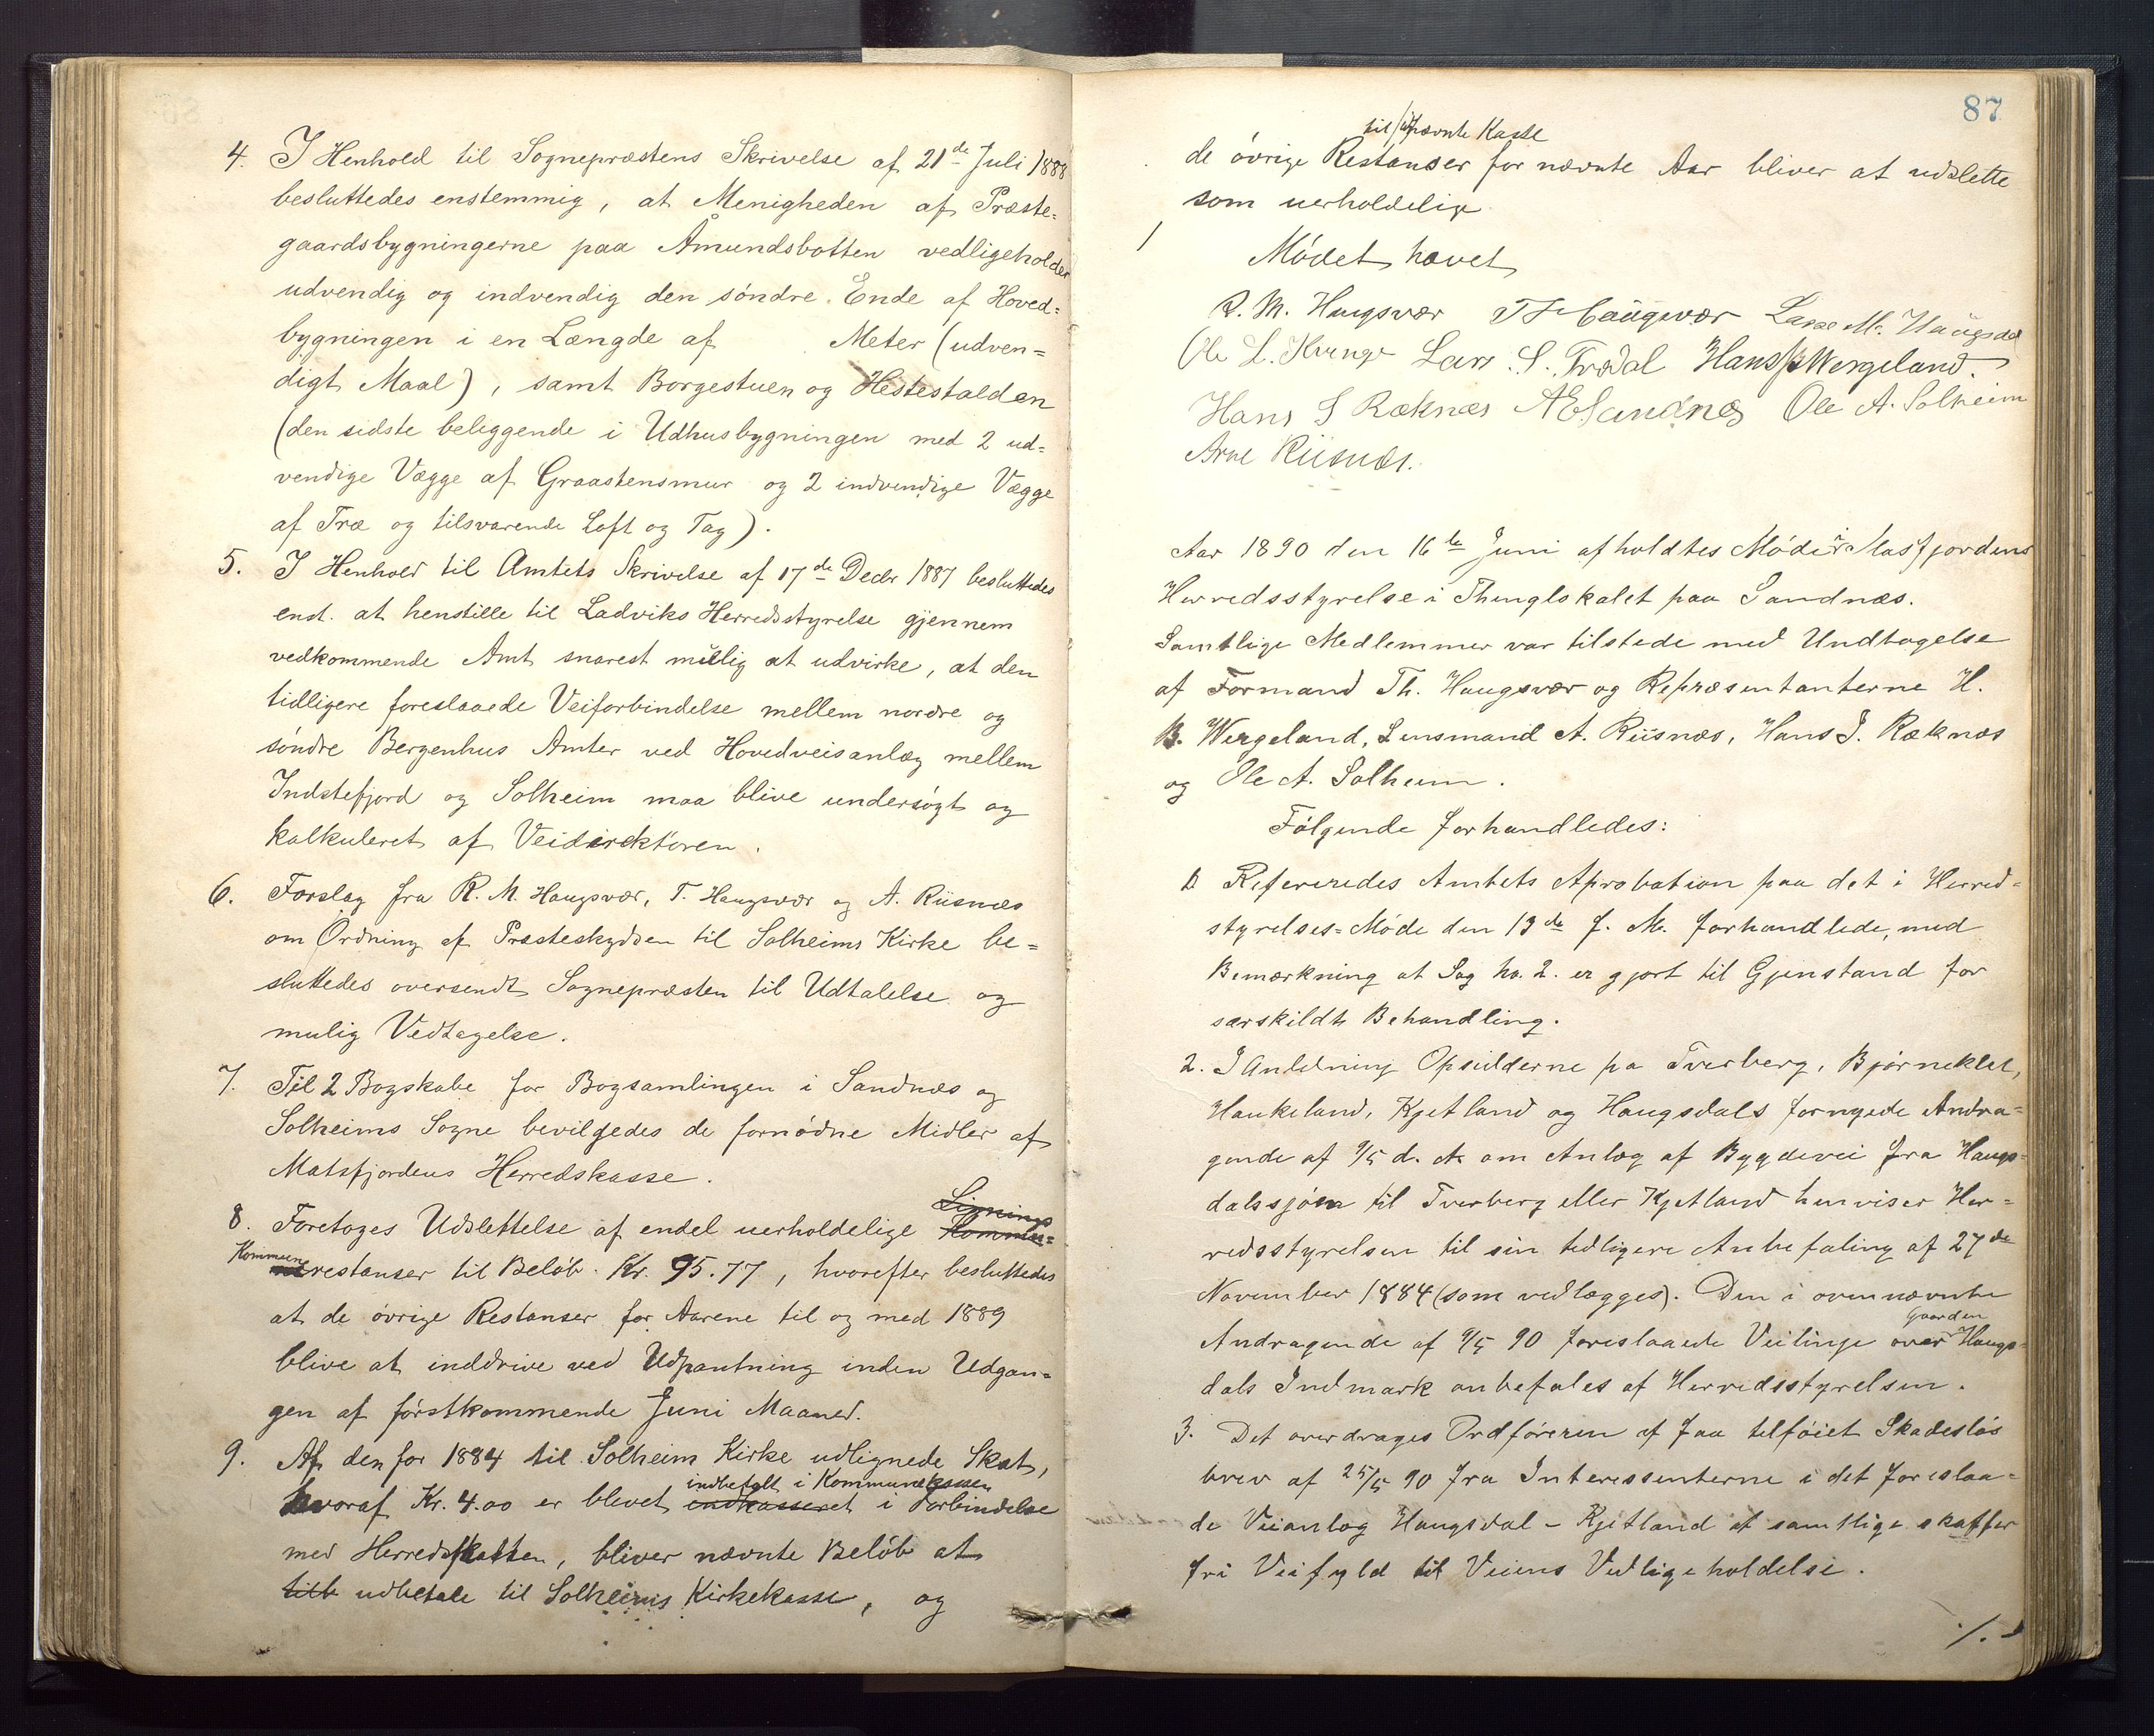 4. I Henhold til Sognepræstens Skrivelse af 21de Juli 1888
besluttedes enstemmig, at Menigheden af Præste-
gaardsbygningerne paa Åmundsbotten vedligeholder
udvendig og indvendig den søndre Ende af Hoved-
bygningen i en Længde af Meter (udven-
digt Maal), samt Borgestuen og Hestestalden
(den sidste beliggende i Udhusbygningen med 2 ud-
vendige Vægge af Graastensmur og 2 indvendige Vægge
af Træ og tilsvarende Loft og Tag).
5. I Henhold til Amtets Skrivelse af 17de Decbr 1887 besluttedes
enst. at henstille til Ladviks Herredsstyrelse gjennem
vedkommende Amt snarest mulig at udvirke, at den
tidligere foreslaaede Veiforbindelse mellem nordre og
søndre Bergenhus Amter ved Hovedveisanlæg mellem
Indstefjord og Solheim maa blive undersøgt og
kalkuleret af Veidirektøren.
6. Forslag fra R. M. Haugsvær, T. Haugsvær og A. Riisnæs
om Ordning af Præsteskydsen til Solheims Kirke be-
sluttedes oversendt Sognepræsten til Udtalelse og
mulig Vedtagelse.
7. Til 2 Bogskabe for Bogsamlingen i Sandnæs og
Solheims Sogne bevilgedes de fornødne Midler af
Matsfjordens Herredskasse.
Lignings
8. Foretoges Udslettelse af endel uerholdelige Kommu-
Kommune
nerestanser til Beløb Kr. 95.77, hvorefter besluttedes
at de øvrige Restanser for Aarene til og med 1889
blive at inddrive ved Udpantning inden Udgan-
gen af førstkommende Juni Maaned.
9. Af den for 1884 til Solheim Kirke udlignede Skat,
indbetalt i Kommunekassen
hvoraf Kr. 4.00 er blevet indkasseret i Forbindelse
med Herredsskatten, bliver nævnte Beløb at
tilb udbetale til Solheims Kirkekasse, og
87
til nævnte Kasse
de øvrige Restanser for nævnte Aar bliver at udslette
som uerholdelige
Mødet hævet
R. M. Haugsvær TH Haugsvær Lasse M. Haugsdal
Ole L. Kvinge Lars S. Trædal Hans B Wergeland.
Hans J Ræknæs A E Sandnæs Ole A. Solheim
Arne Riisnæs.
Aar 1890 den 16de Juni afholdtes Møde i Masfjordens
Herredsstyrelse i Thinglokalet paa Sandnæs.
Samtlige Medlemmer var tilstede med Undtagelse
af Formand Th. Haugsvær og Repræsentanterne H.
B. Wergeland, Lensmand A. Riisnæs, Hans J. Ræknæs
og Ole A. Solheim.
Følgende forhandledes:
1. Refereredes Amtets Aprobation paa det i Herred-
styrelses-Møde den 13de f. M. forhandlede, med
Bemærkning at Sag no. 2. er gjort til Gjenstand for
særskildt Behandling.
2. I Anledning Opsidderne pa Tverberg, Bjørneklet,
Haukeland, Kjetland og Haugsdals fornyede Andra-
gende af 9/5 d. A. om Anlæg af Bygdevei fra Haugs-
dalssjøen til Tverberg eller Kjetland henviser Her-
redsstyrelsen til sin tidligere Anbefaling af 27de
November 1884 (som vedlægges). Den i ovennævnte
Gaarden
Andragende af 9/5 90 foreslaaede Veilinje over Haugs-
dals Indmark anbefales af Herredsstyrelsen.
3. Det overdrages Ordføreren at faa tilføiet Skadesløs
brev af 25/5 90 fra Interessenterne i det foreslaa-
de Veianlæg Haugsdal - Kjetland at samtlige skaffer
fri Veifyld til Veiens Vedligeholdelse.
./.